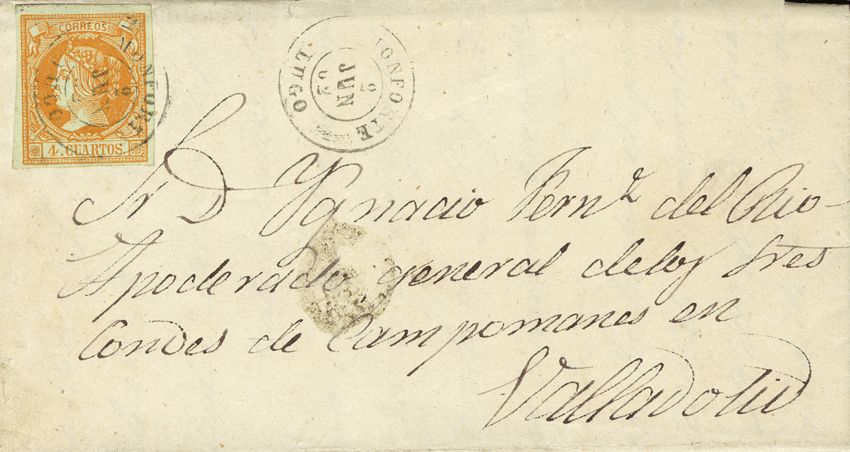 CORREOS
4 CUARTOS.
MONFORTE
JUN
LUGO
MONFORTE
JUN
62
LUGO
Sr D Ygnacio Fern.z del Rio
Apoderado general delos Sres
Condes de Campomanes en
Valladolid